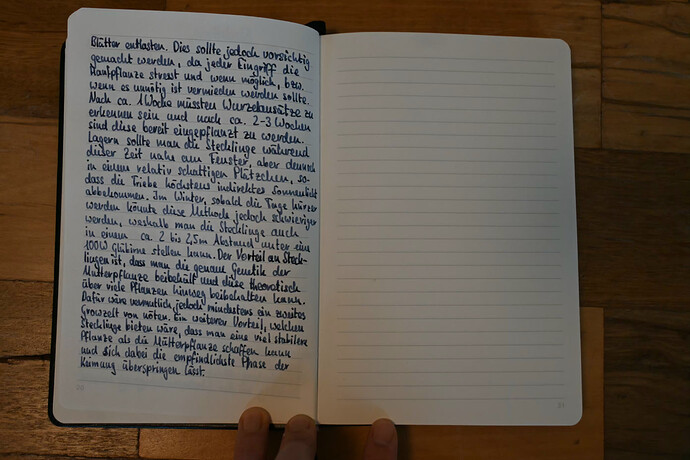 Blätter entlasten. Dies sollte jedoch vorsichtig
gemacht werden, da jeder Eingriff die
Hanfpflanze stresst und wenn möglich, bzw.
wenn es unnötig ist vermieden werden sollte.
Nach ca. 1 Woche müssten Wurzelansätze zu
erkennen sein und nach ca. 2-3 Wochen
sind diese bereit eingepflanzt zu werden.
Lagern sollte man die Stecklinge während
dieser Zeit nahe am Fenster, aber dennoch
in einem relativ schattigen Plätzchen, so-
dass die Triebe höchstens indirektes Sonnenlicht
abbekommen. Im Winter, sobald die Tage kürzer
werden könnte diese Methode jedoch schwieriger
werden, weshalb man die Stecklinge auch
in einem ca. 2 bis 2,5m Abstand unter ein
100W Glübirne stellen kann. Der Vorteil an Steck-
lingen ist, dass man die genaue Genetik der
Mutterpflanze beibehält und diese theoretisch
über viele Pflanzen hinweg beibehalten kann.
Dafür wäre vermutlich jedoch mindestens ein zweites
Growzelt von nöten. Ein weiterer Vorteil, welchen
Stecklinge bieten wäre, dass man eine viel stabilere
Pflanze als die Mutterpflanze schaffen kann
und sich dabei die empfindlichste Phase der
Keimung überspringen lässt.